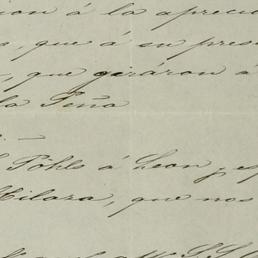 ion á la aprecia
s, que á su prese
, que giráron á
la Peña
Pöhls á Leon y
Milara, que nos